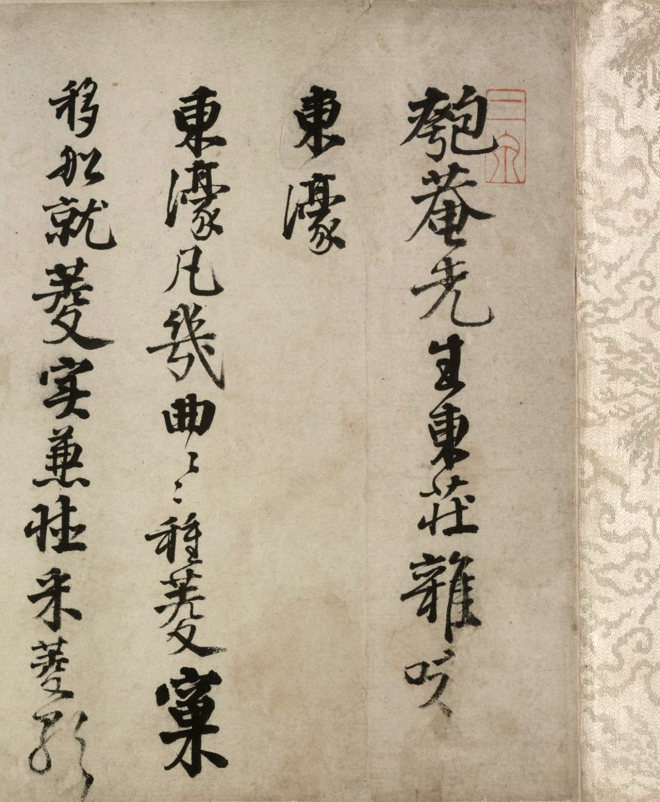 匏菴先生東莊雜咏
東濠
東濠凡幾曲〻種菱窠
移船就菱實兼聽采菱歌